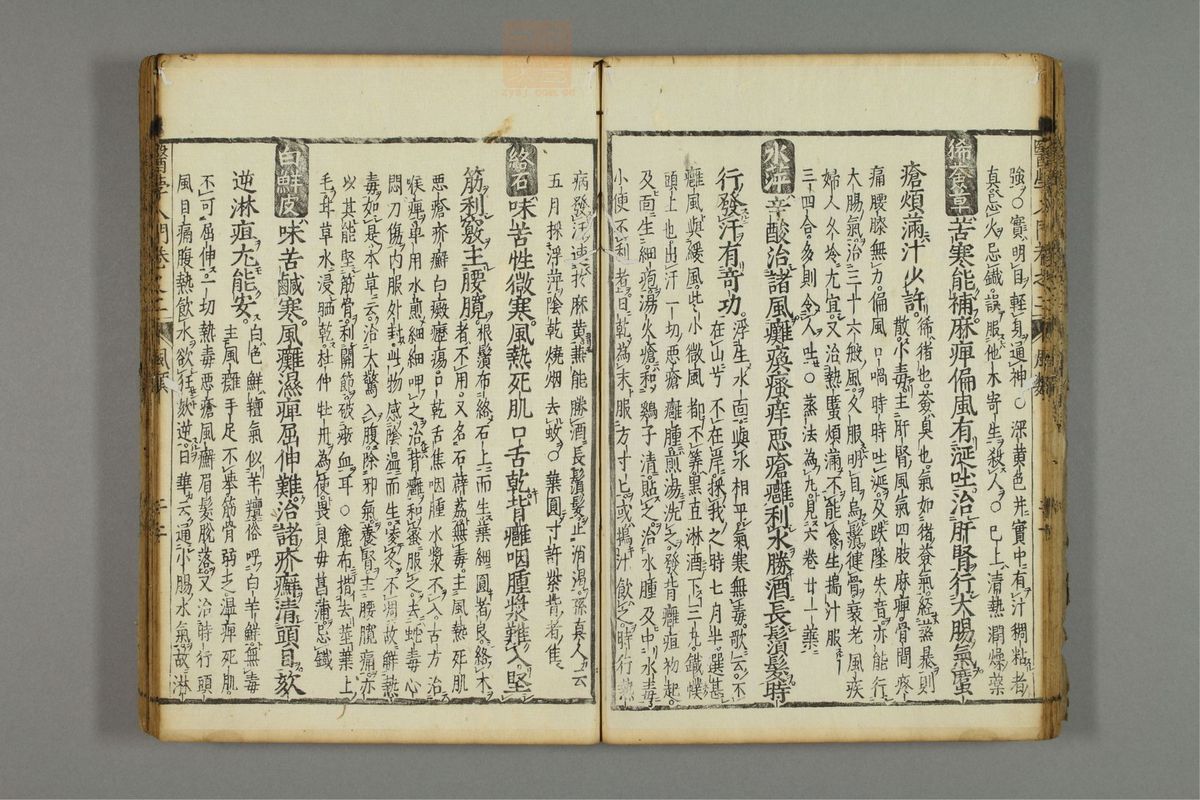 強○實明目輕身通神○深黃色并實中有汁稠粘者
真忌火忌鐵誤服他木寄生殺人○已上清熱潤燥藥
豨薟草苦寒能補麻痺偏風有涎吐治肝腎行大腸氣䘌
瘡煩滿汁少許
豨猪也薟臭也氣如猪薟氣經蒸暴則
散小毒主肝腎風氣四肢麻痺骨間疼
痛腰膝無力偏風口喎時時吐涎及跌墜失音亦能行
大腸氣治三十六般風久服明目烏鬚健骨衰老風疾
婦人久冷尤宜又治熱䘌煩滿不能食生搗汁服
三四合多則令人吐○蒸法為丸見六卷廿一葉
水萍辛酸治諸風癱瘓瘙痒惡瘡癰利水勝酒長鬚髮時
行發汗有奇功
浮生水面與水相平氣寒無毒歌云不
在山兮不在岸採我之時七月半選甚
癱風與緩風些小微風都不筭黑豆淋酒下三丸鐵幞
頭上也出汗一切惡瘡癰腫煎湯洗之發背癰疽初起
及面生細疱湯火瘡和鷄子清貼之治水腫及中水毒
小便不利者日乾為末服方寸匕或搗汁飲之時行熱
病發汗速於麻黃兼能勝酒長鬚髮止消渴孫真人云
五月採浮萍陰乾燒烟去蚊○葉圓寸許紫背者佳
絡石味苦性微寒風熱死肌口舌乾背癰咽腫漿難入堅
筋利竅主腰臗
根鬚布絡石上而生葉細圓者良絡木
者不用又名石薜荔無毒主風熱死肌
惡瘡疥癬白癜癧瘍口乾舌焦咽腫水漿不入古方治
喉痺單用水煎細細呷之治背癰和蜜服之去蛇毒心
悶刀傷內服外封此物感陰濕而生凌冬不凋故解熱
毒如是本草云治大驚入腹除邪氣養腎主腰臗痛亦
以其能堅筋骨利關節破瘀血耳○麄布揩去莖葉上
毛耳草水浸晒乾杜仲牡丹為使畏貝母菖蒲忌鐵
白鮮皮味苦鹹寒風癱濕痺屈伸難治諸疥癬清頭目欬
逆淋疽尤能安
白色鮮羶氣似羊羶俗呼白羊鮮無毒
主風癱手足不舉筋骨弱乏濕痺死肌
不可屈伸一切熱毒惡瘡風癬眉髮脫落又治時行頭
風目痛腹熱飲水欲狂欬逆日華云通小腸水氣故淋